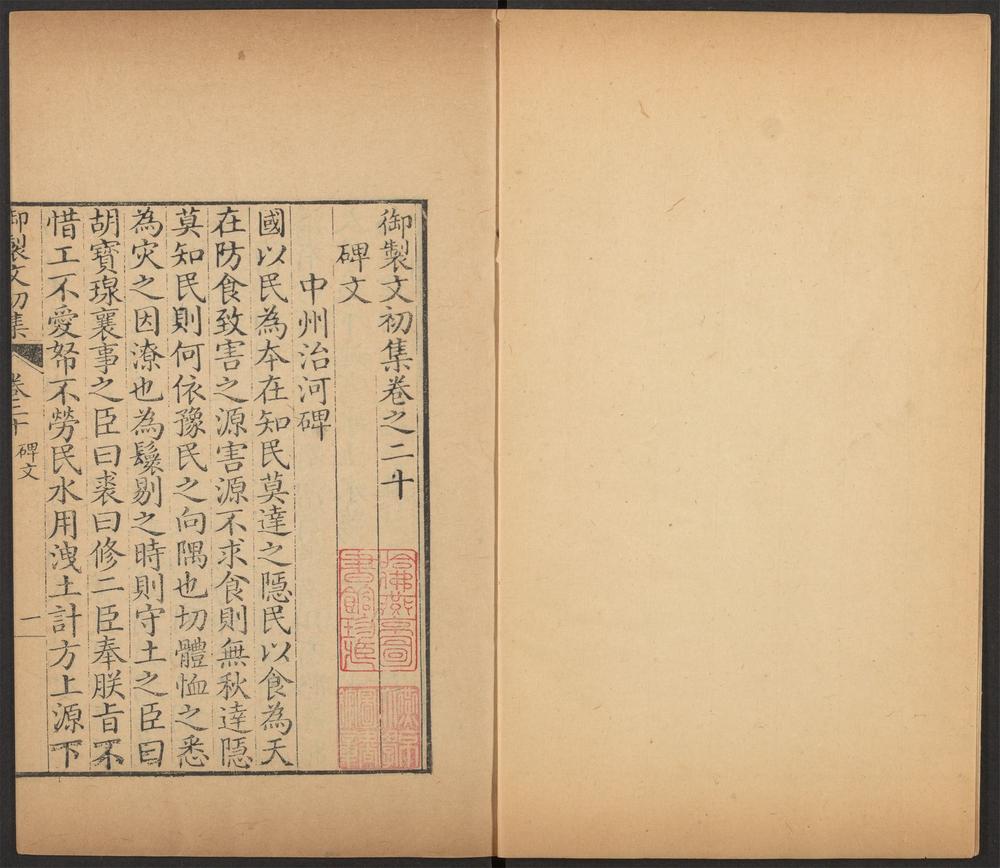 御製文初集卷之二十
碑文
中州治河碑
國以民為本在知民莫達之隱民以食為天
在防食致害之源害源不求食則無秋達隱
莫知民則何依豫民之向隅也切體恤之悉
為灾之因潦也為鬟剔之時則守土之臣曰
胡寶瑔襄事之臣曰裘曰修二臣奉朕旨不
惜工不愛帑不勞民水用洩土計方上源下
御製文初集
卷二十
碑文
一
哈佛燕京圖書館珍藏